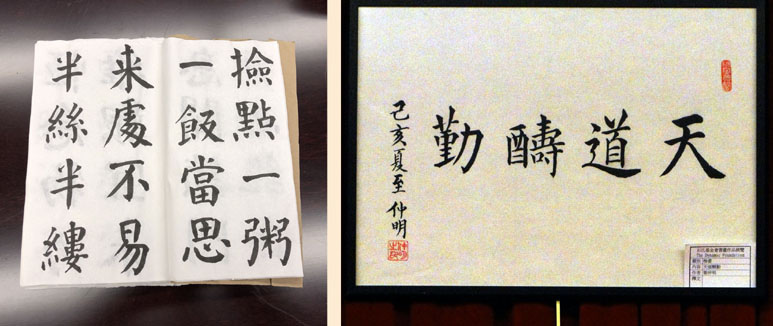 撿點一粥
一飯當思
来處不易
半絲半縷
天道醻勤
己亥夏至 仲明